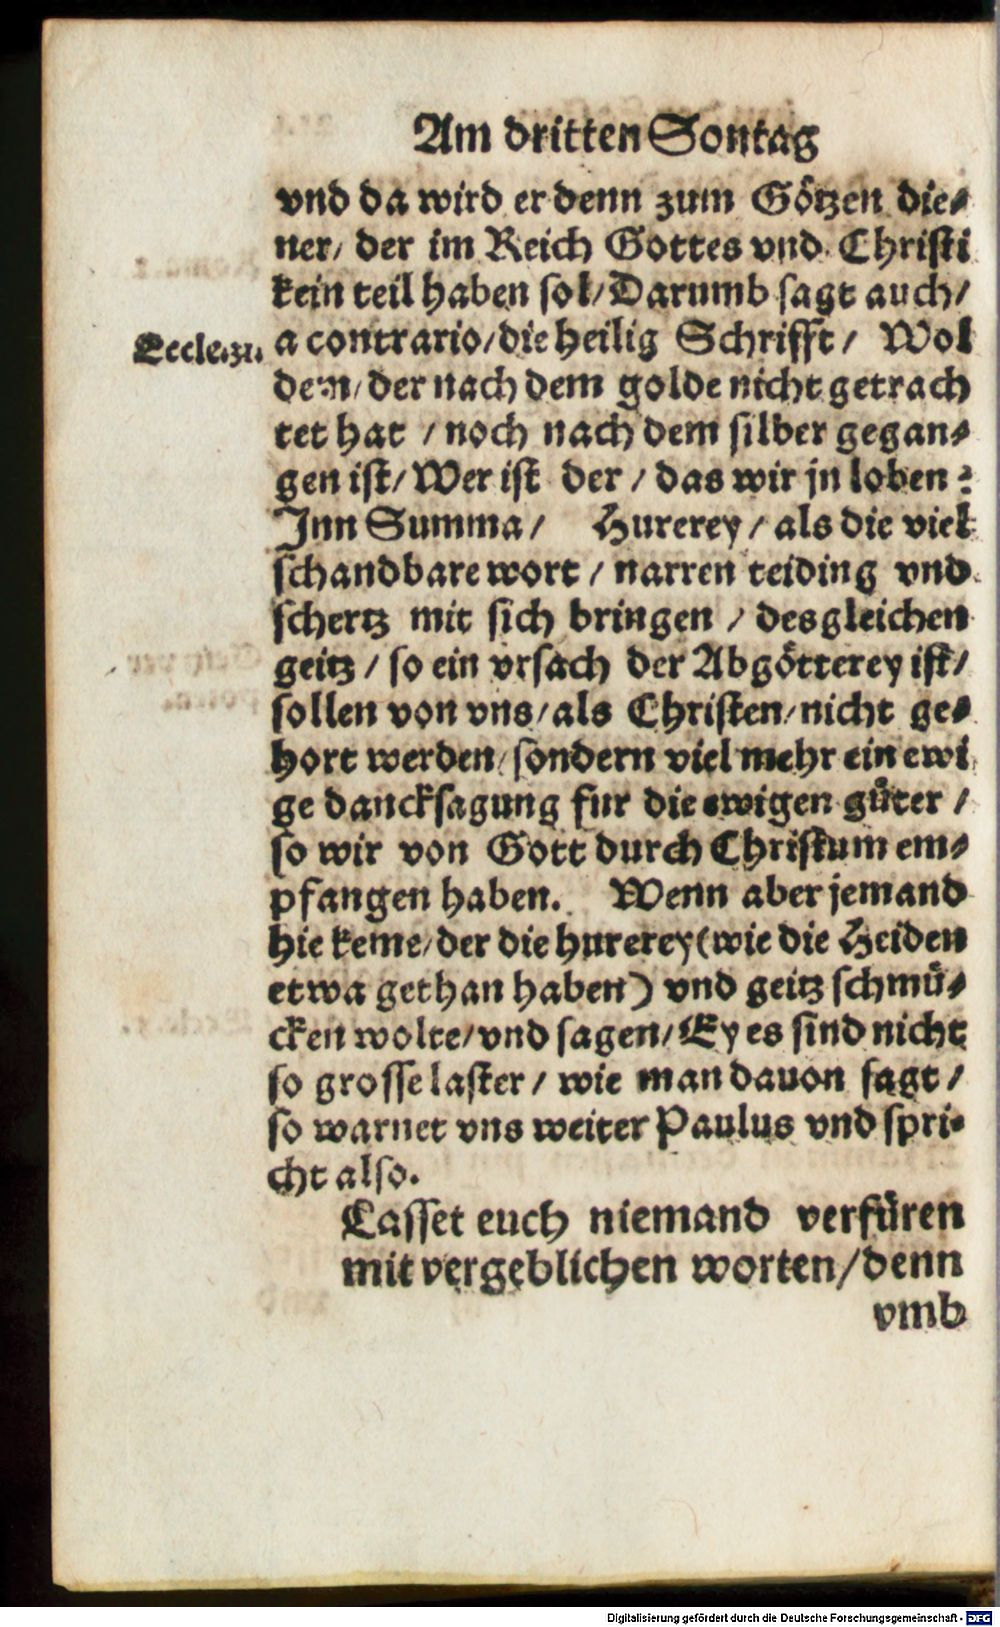 Am dritten Sontag
vnd da wird er denn zum Götzen die⸗
ner/ der im Reich Gottes vnd Christi
kein teil haben sol/ Darumb sagt auch/
Eccle.31.
a contrario/ die heilig Schrifft/ Wol
dem/ der nach dem golde nicht getrach
tet hat / noch nach dem silber gegan⸗
gen ist/ Wer ist der / das wir jn loben?
Inn Summa/ Hurerey / als die viel
schandbare wort / narren teiding vnd
schertz mit sich bringen / desgleichen
geitz / so ein vrsach der Abgötterey ist/
sollen von vns/ als Christen/ nicht ge⸗
hort werden/ sondern viel mehr ein ewi
ge dancksagung fur die ewigen güter /
so wir von Gott durch Christum em⸗
pfangen haben. Wenn aber jemand
hie keme/ der die hurerey (wie die Heiden
etwa gethan haben) vnd geitz schmü⸗
cken wolte/ vnd sagen/ Ey es sind nicht
so grosse laster / wie man dauon sagt /
so warnet vns weiter Paulus vnd spri⸗
cht also.
Lasset euch niemand verfüren
mit vergeblichen worten/ denn
vmb
Digitalisierung gefördert durch die Deutsche Forschungsgemeinschaft - DFG